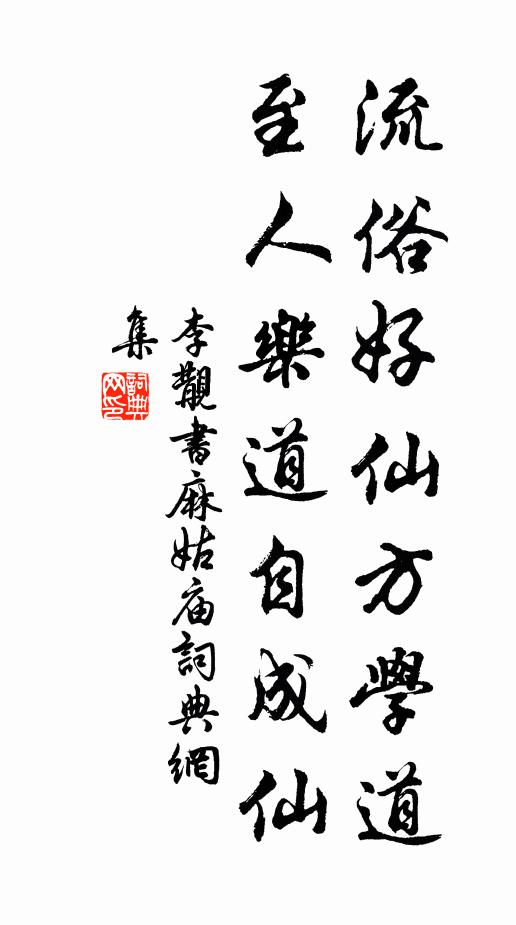 流俗好仙方學道
至人樂道自成仙
李觀書麻姑庙詞典網
集
詞典
网印